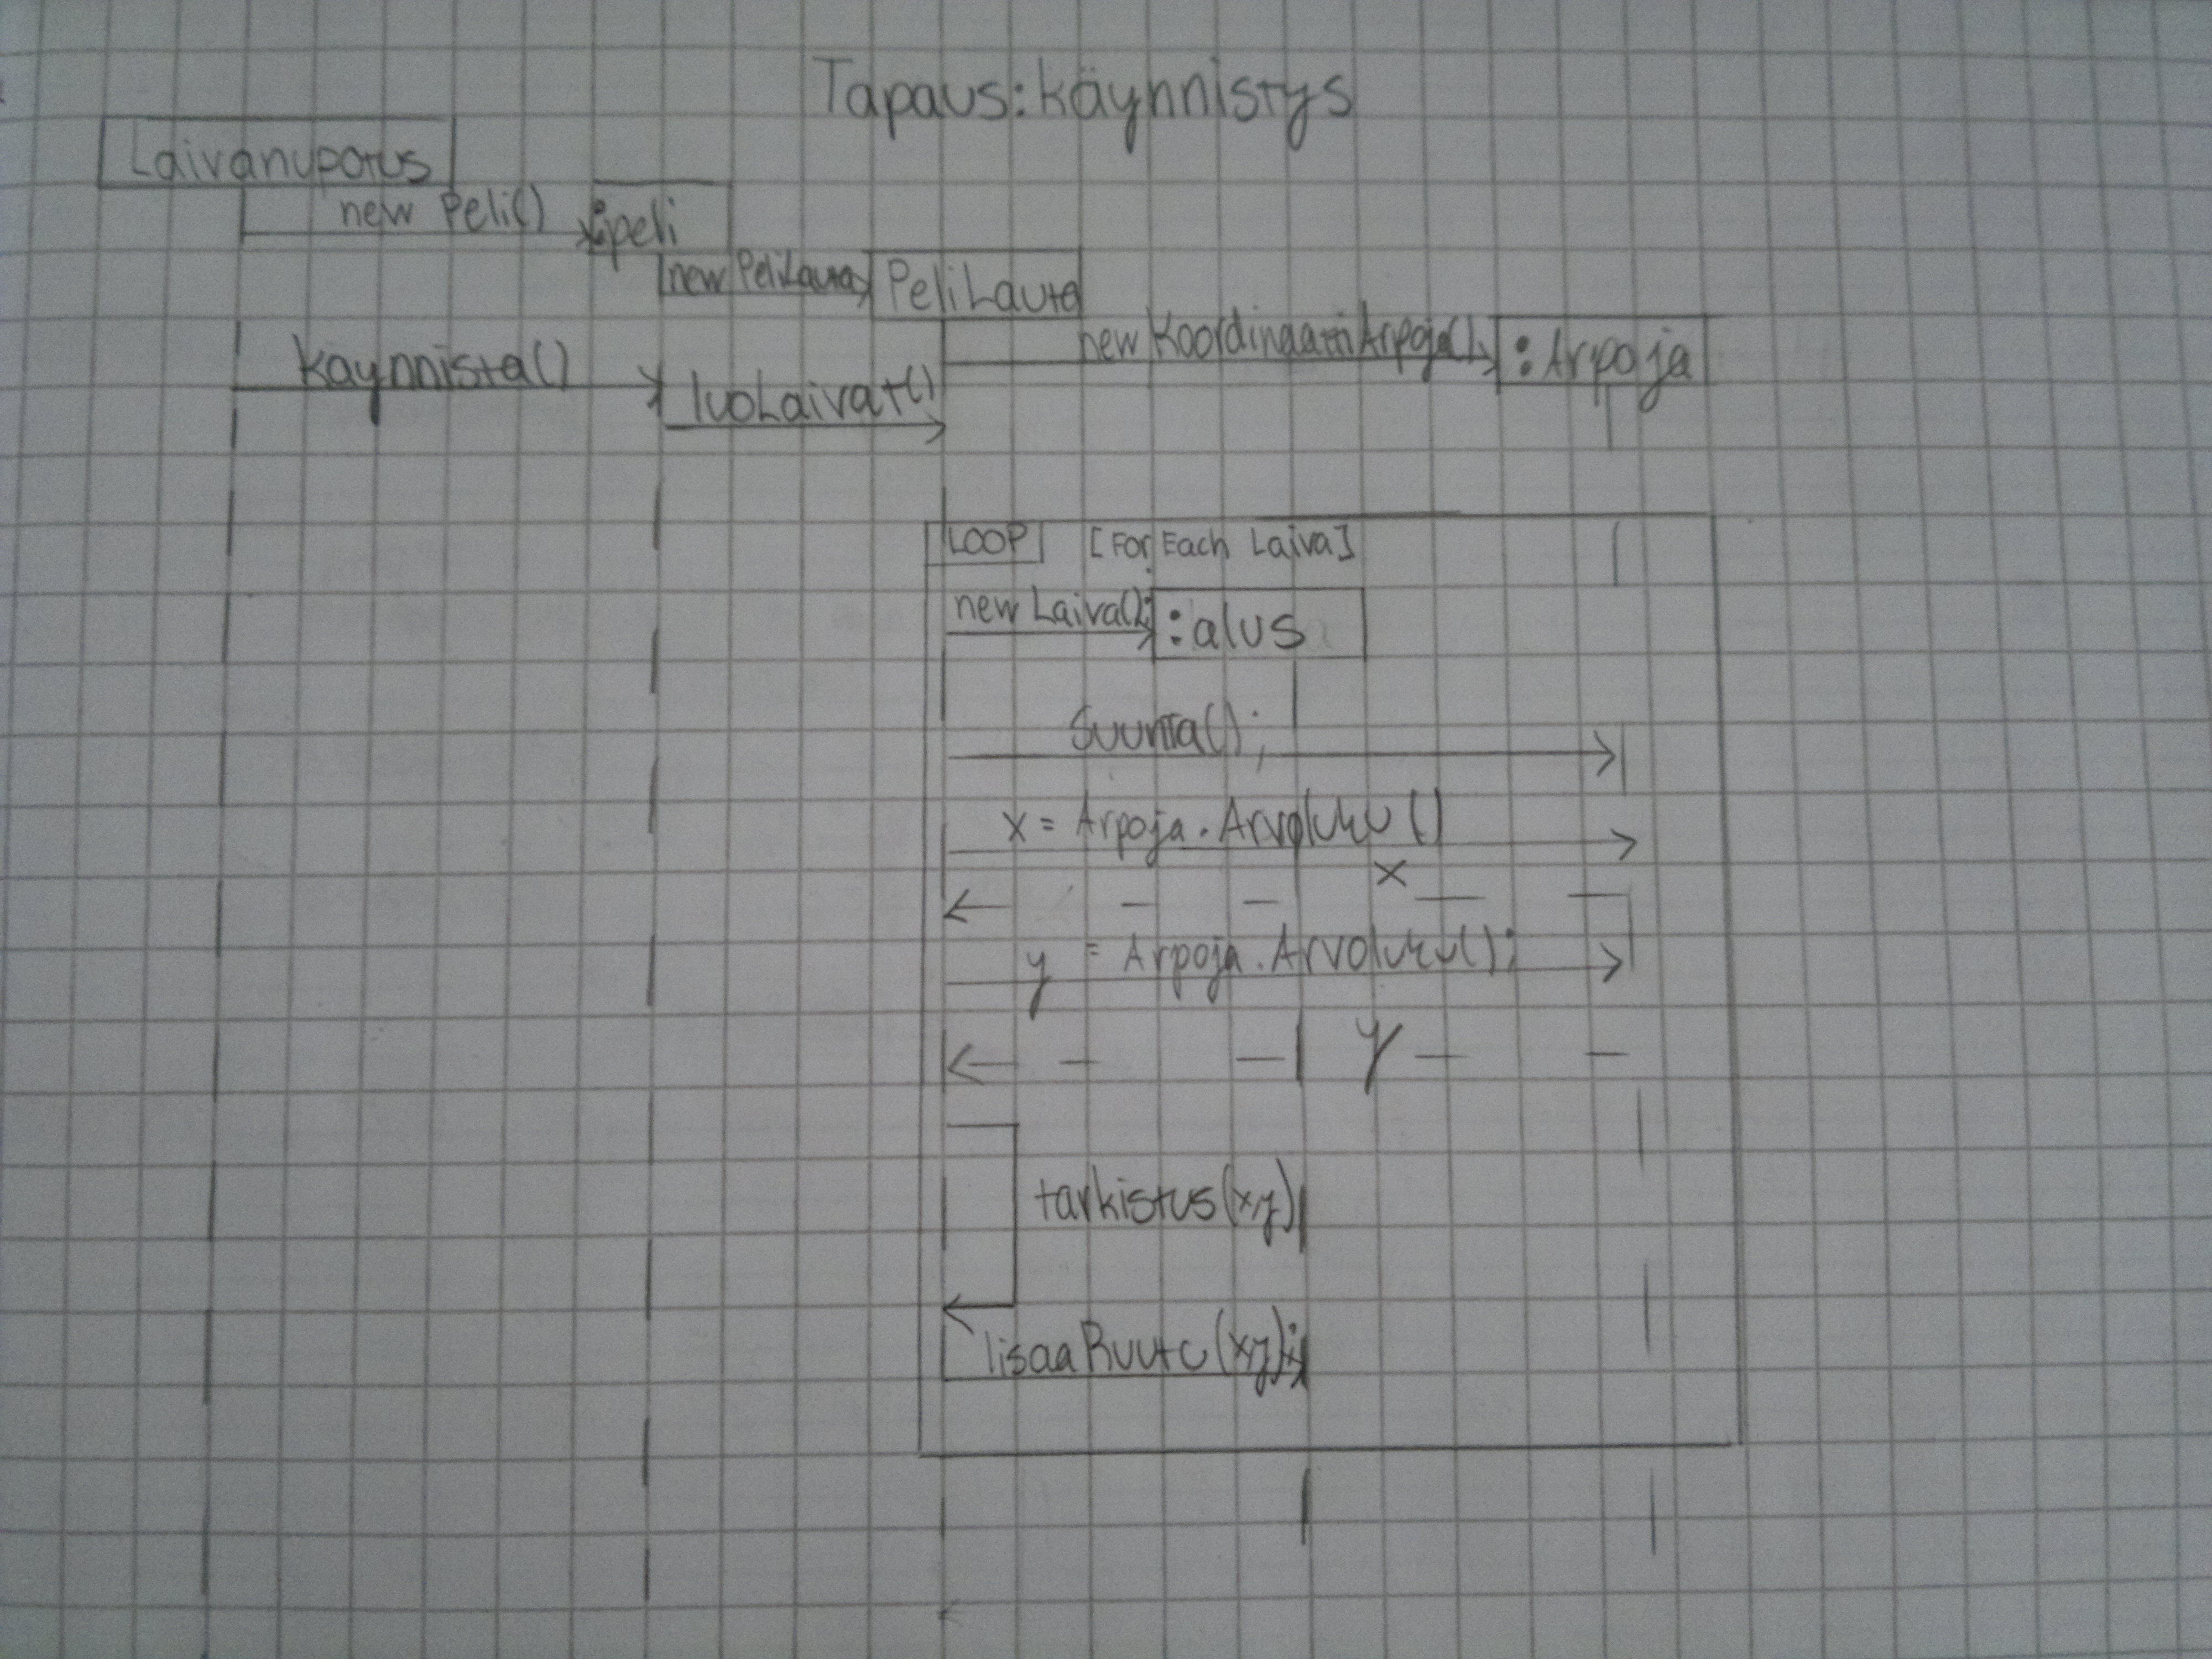 Tapaus: käynnistys
Laivanupotus
new Peli()
:peli
new PeliLauta
PeliLauta
new KoordinaattiArpoja();
:Arpoja
käynnistä()
luoLaivat()
LOOP [For Each Laiva]
new Laiva();
:alus
Suunta();
x = Arpoja.Arvoluku()
x
y = Arpoja.Arvoluku();
y
tarkistus(x,y)
lisaaRuutu(x,y);